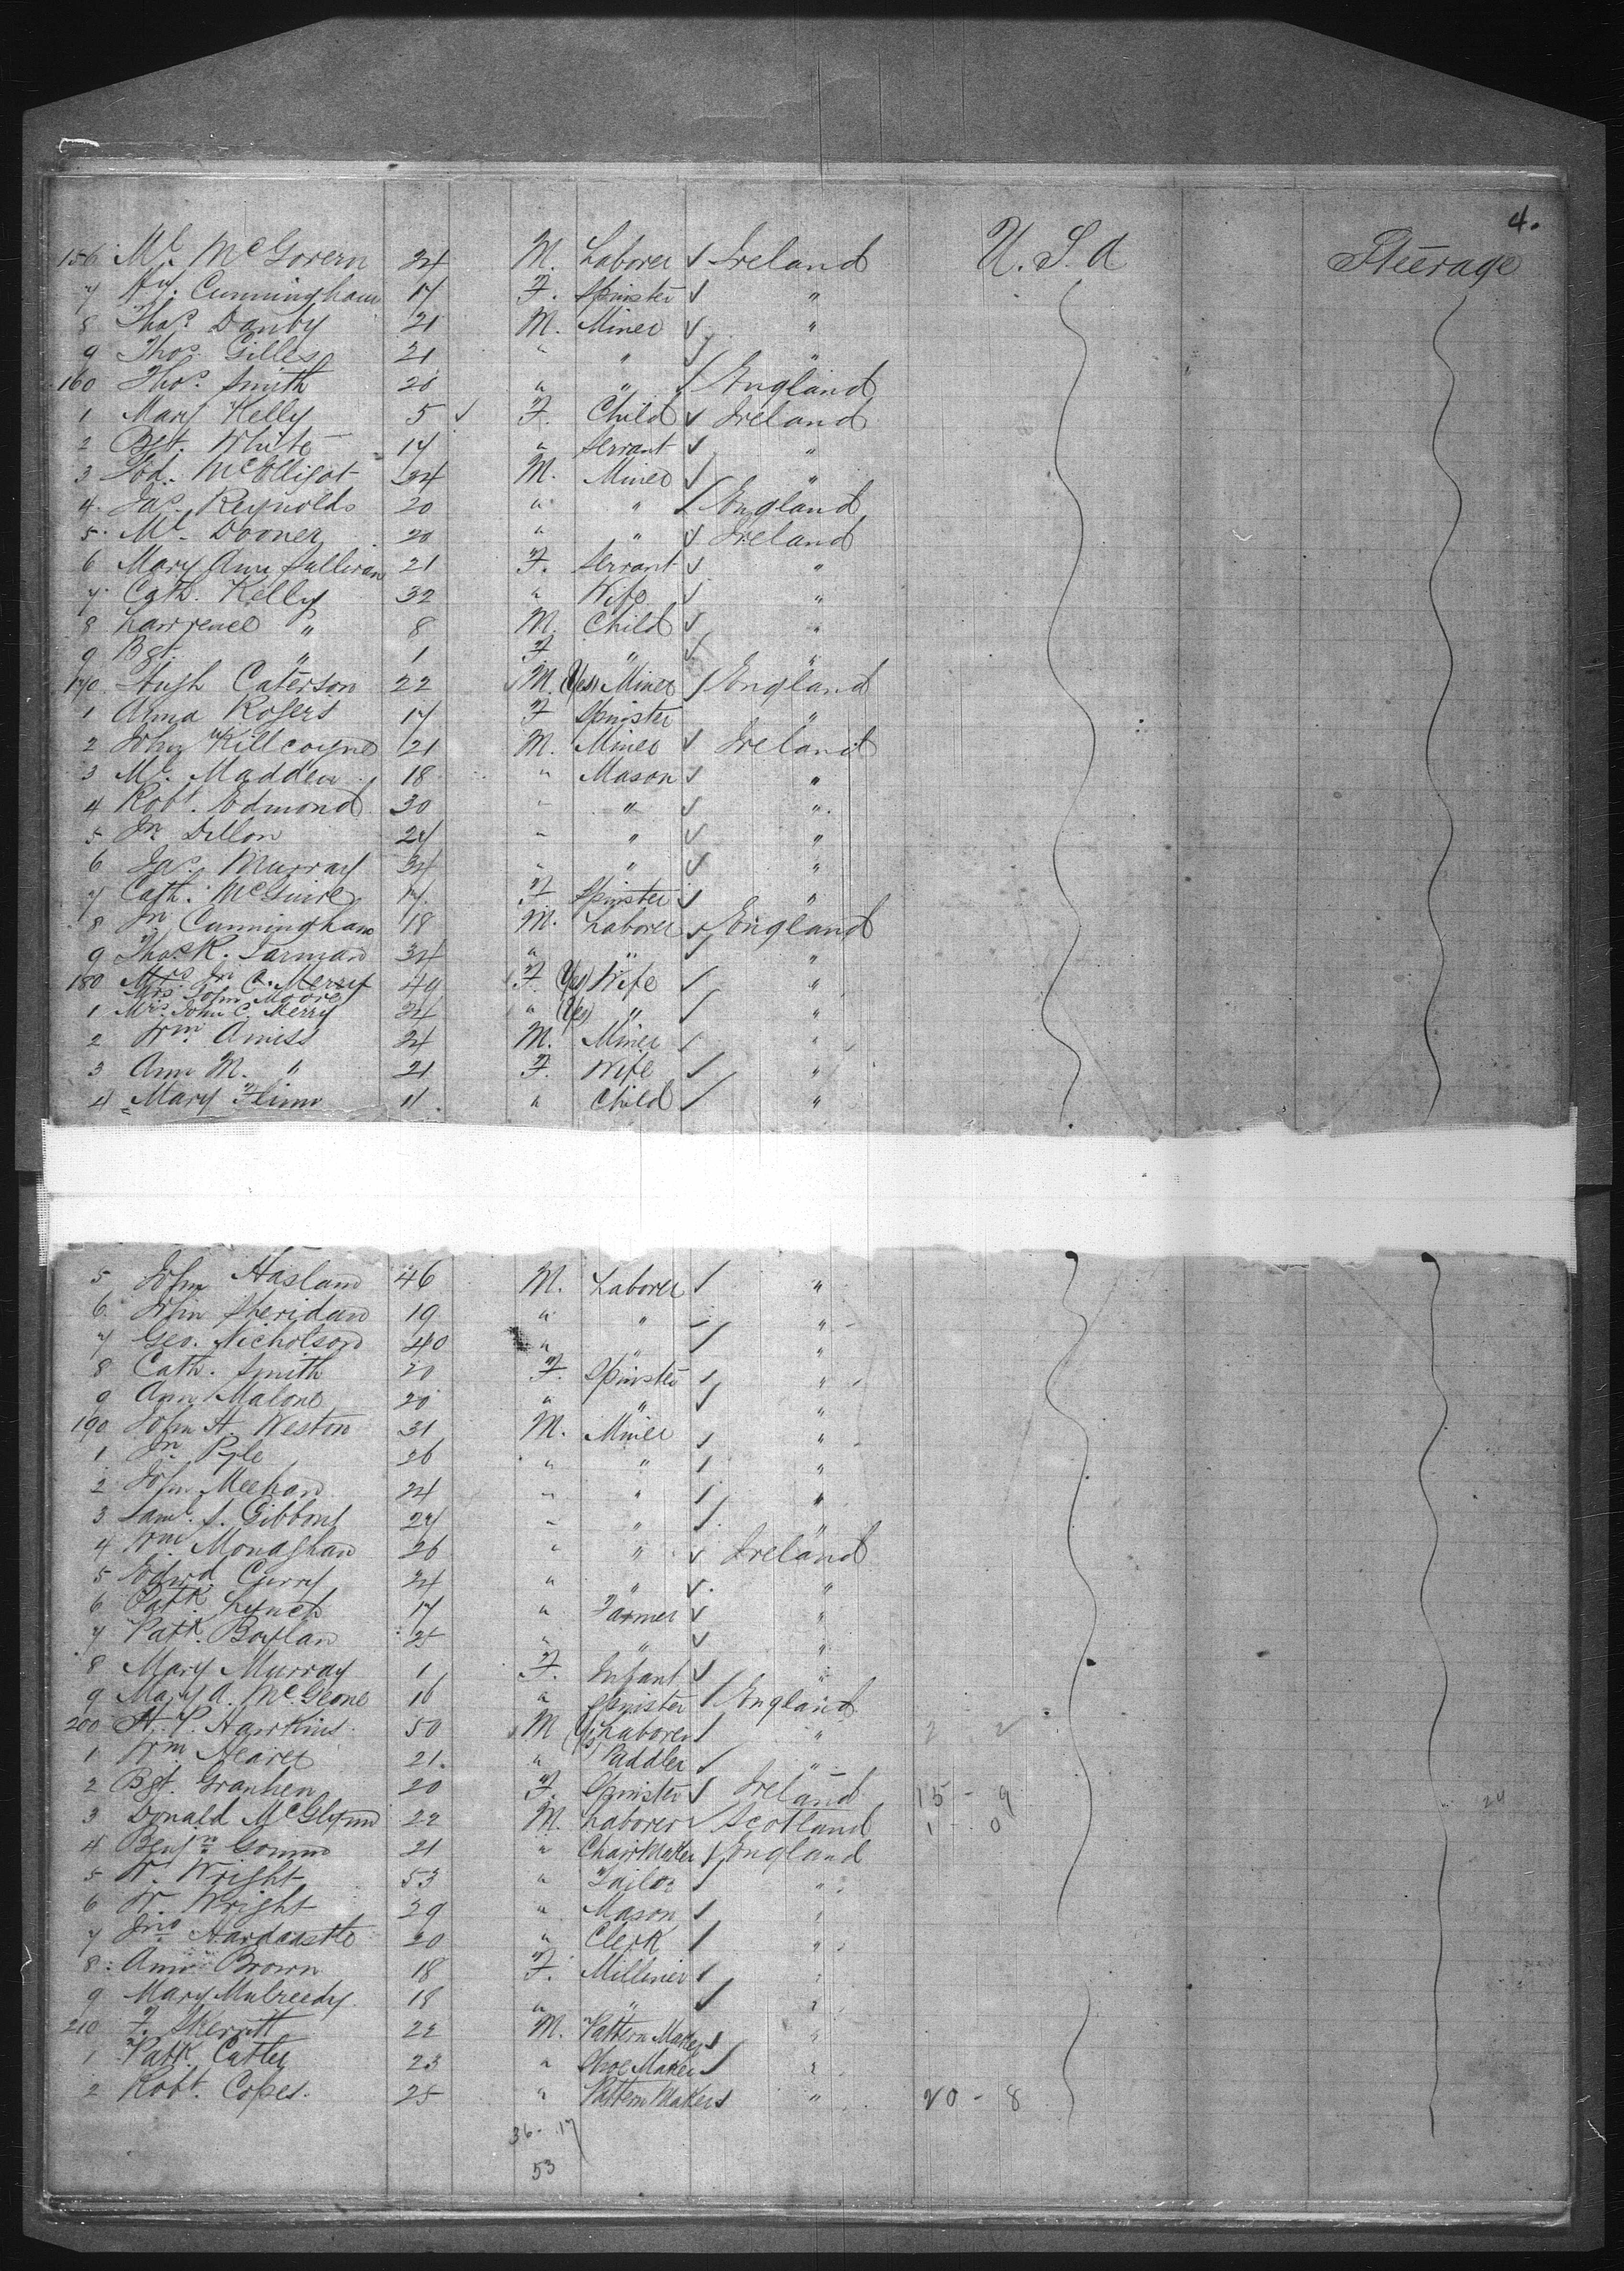 4.
156 Ml. McGovern 24 M. Laborer ✓ Ireland U.S.A Steerage
7 Cunningham 17 F. Spinster ✓ "
8 Thos Danby 21 M. Miner ✓ "
9 Thos. Gilles 21 " " ✓ "
160 Thos. Smith 20 " " / England
1 Mary Kelly 5 ✓ F. Child ✓ Ireland
2 Bgt. White 17 " Servant ✓ "
3 McElligot 24 M. Miner ✓ "
4 Jas. Reynolds 20 " " / England
5 Ml. Dooner 20 " " ✓ Ireland
6 Mary Ann Sullivan 21 F. Servant ✓ "
7 Cath. Kelly 32 " Wife ✓ "
8 Lawrence " 8 M. Child ✓ "
9 Bgt. " 1 F " ✓ "
170 Hugh Caterson 22 M. (Yes) Miner / England
1 Anna Rogers 17 F Spinster "
2 John Killcoyne 21 M. Miner ✓ Ireland
3 Ml. Madden 18 " Mason ✓ "
4 Robt. Edmond 30 " " ✓ "
5 Jn Dillon 24 " " ✓ "
6 Jas. Murray 34 " " ✓ "
7 Cath. McGuire 17 F. Spinster ✓ "
8 Jn Cunningham 18 M. Laborer ✓ England
9 Thos R. Jarman 34 " " / "
180 Mrs Jn C. Merry 49 F (Yes) Wife / "
Mrs John Moore
1 Mrs. John C. Merry 34 " (Yes) " / "
2 Wm. Amiss 24 M. Miner / "
3 Ann M. " 21 F. Wife / "
4 Mary Flinn 11 " Child / "
5 John Haslam 46 M. Laborer / "
6 John Sheridan 19 " " / "
7 Geo. Nicholson 40 " " / "
8 Cath. Smith 20 F. Spinster / "
9 Ann Malone 20 " " / "
190 John H. Weston 31 M. Miner / "
1 Jn Pyle 26 " " / "
2 John Meehan 24 " " / "
3 Saml. S. Gibbons 24 " " / "
4 Wm. Monaghan 26 " " ✓ Ireland
5 Edwd Curry 24 " " ✓ "
6 Patk. Lynch 17 " Farmer ✓ "
7 Patk. Boylan 25 " " ✓ "
8 Mary Murray 1 F. Infant ✓ "
9 Mary A. McGeone 16 " Spinster / England
200 H. P. Hawkins 50 M (Yes) Laborer / " 2 2
1 Wm Hearex 21 " Paddler / "
2 Bgt. Granhen 20 F. Spinster / Ireland 15 - 9 24
3 Donald McGlynn 22 M. Laborer / Scotland 1 - 0
4 Benjn 21 " Chair Maker / England
5 W. Wright 53 " Tailor / "
6 W. Wright 29 " Mason / "
7 Jno Hardcastle 20 " Clerk / "
8 Ann Brown 18 F. Milliner / "
9 Mary Mulreedy 18 " " / "
210 F. Skerritt 22 M. Pattern Maker / "
1 Patk. Catley 23 " Shoe Maker / "
2 Robt. Copes. 25 " Pattern Maker / " 20 - 8
36 - 17
53